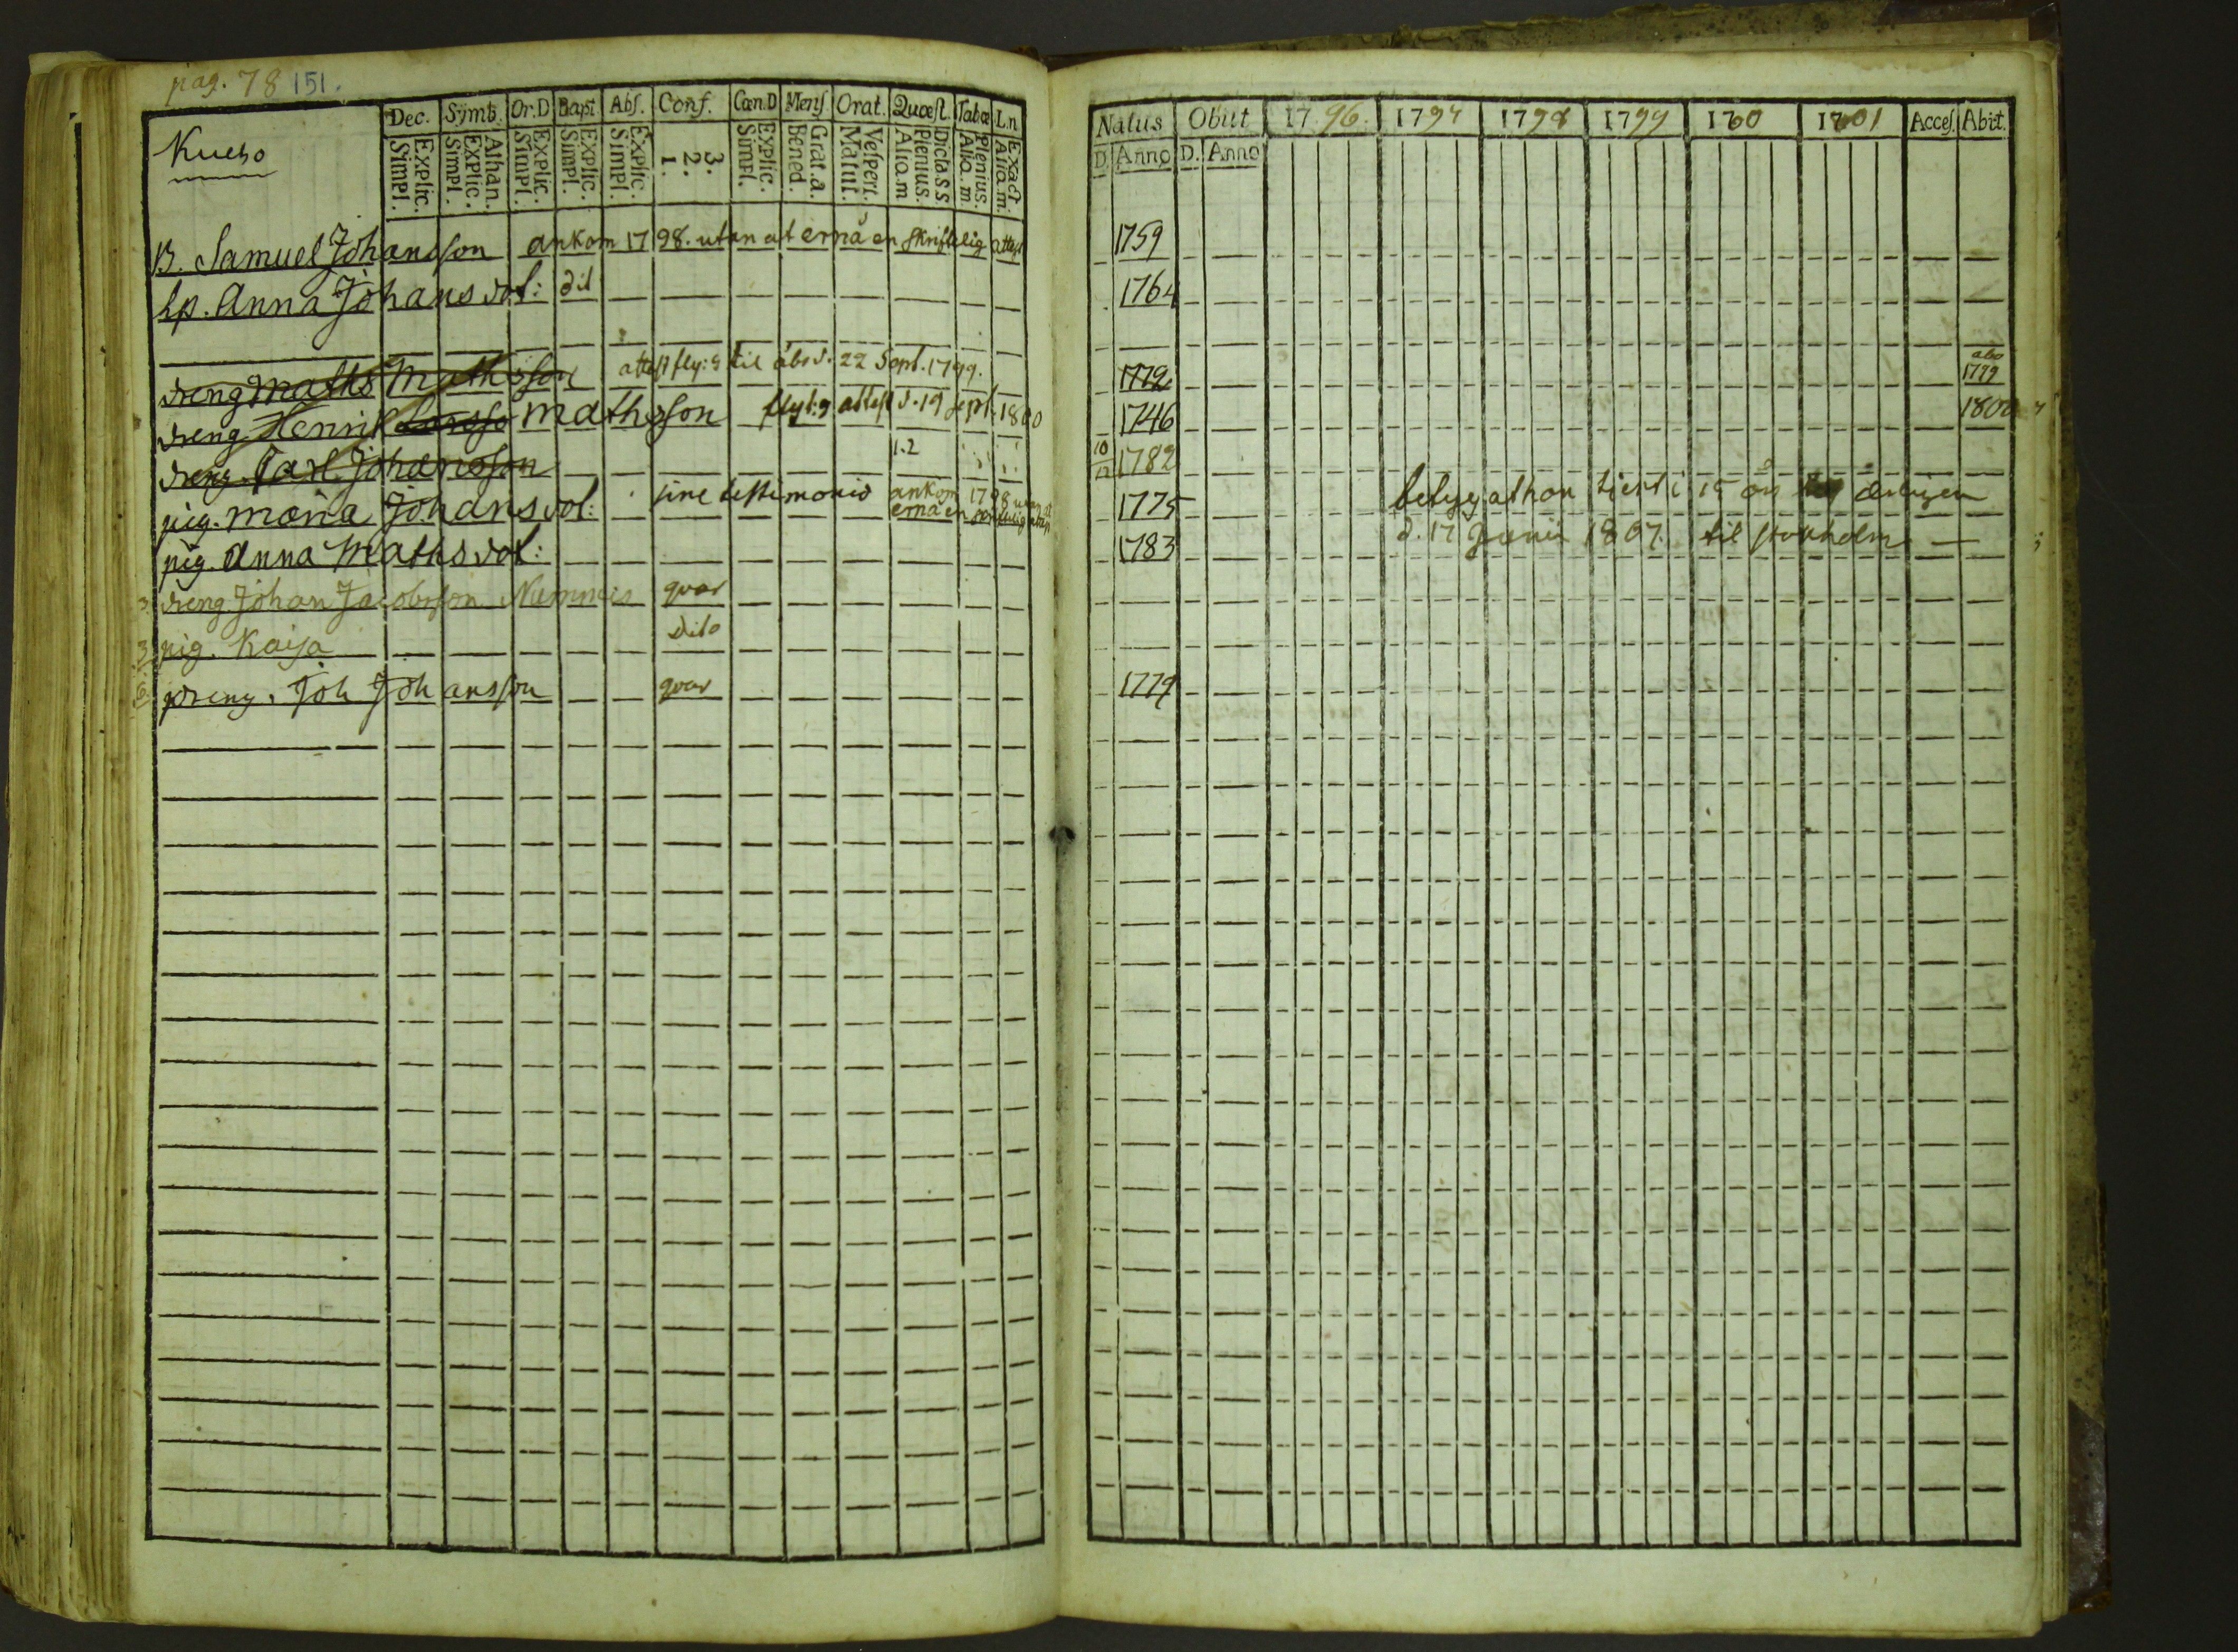 pag. 78 151.
Kueho
Dec. Symb. Or.D Bapt Abs. Conf. Cœn.D Mens Orat. Quæst. Tabœ L.n
Explic. Simpl. Athan. Explic. Simpl. Explic. Simpl. Explic. Simpl. Explic. Simpl. 3. 2. 1. Explic. Simpl. Grat.a. Bened. Vespert. Matut. Dictass Plenius. Alio.m Plenius. Alio.m Exact. Alio.m.
B. Samuel Johansson ankom 1798. utan at ernå en skriftelig attest
hp. Anna Johansdot: dit
dreng Maths Mathsson attest fly:g til åbo d. 22 Sept. 1799.
dreng Henrik Mathsson flyt:g attest d. 19 sept. 1800
dreng Carl Johansson 1.2
pig. Maria Johansdot: sine testimonio ankom 1798 utan at
ernå en
pig. Anna Mathsdot:
3. dreng Johan Jacobsson Nummis qvar
3 pig. Kaija Dito
dreng. Joh Johansson qvar
Natus Obiit 1796. 1797 1798 1799 1800 1801 Acces. Abiit.
D. Anno D. Anno
1759
1764
1772 abo 1799
1746 1800
10/12 1782
1775 betyg at hon tient i 15 års
1783 d. 17 Junii 1807. til stokholm
1779